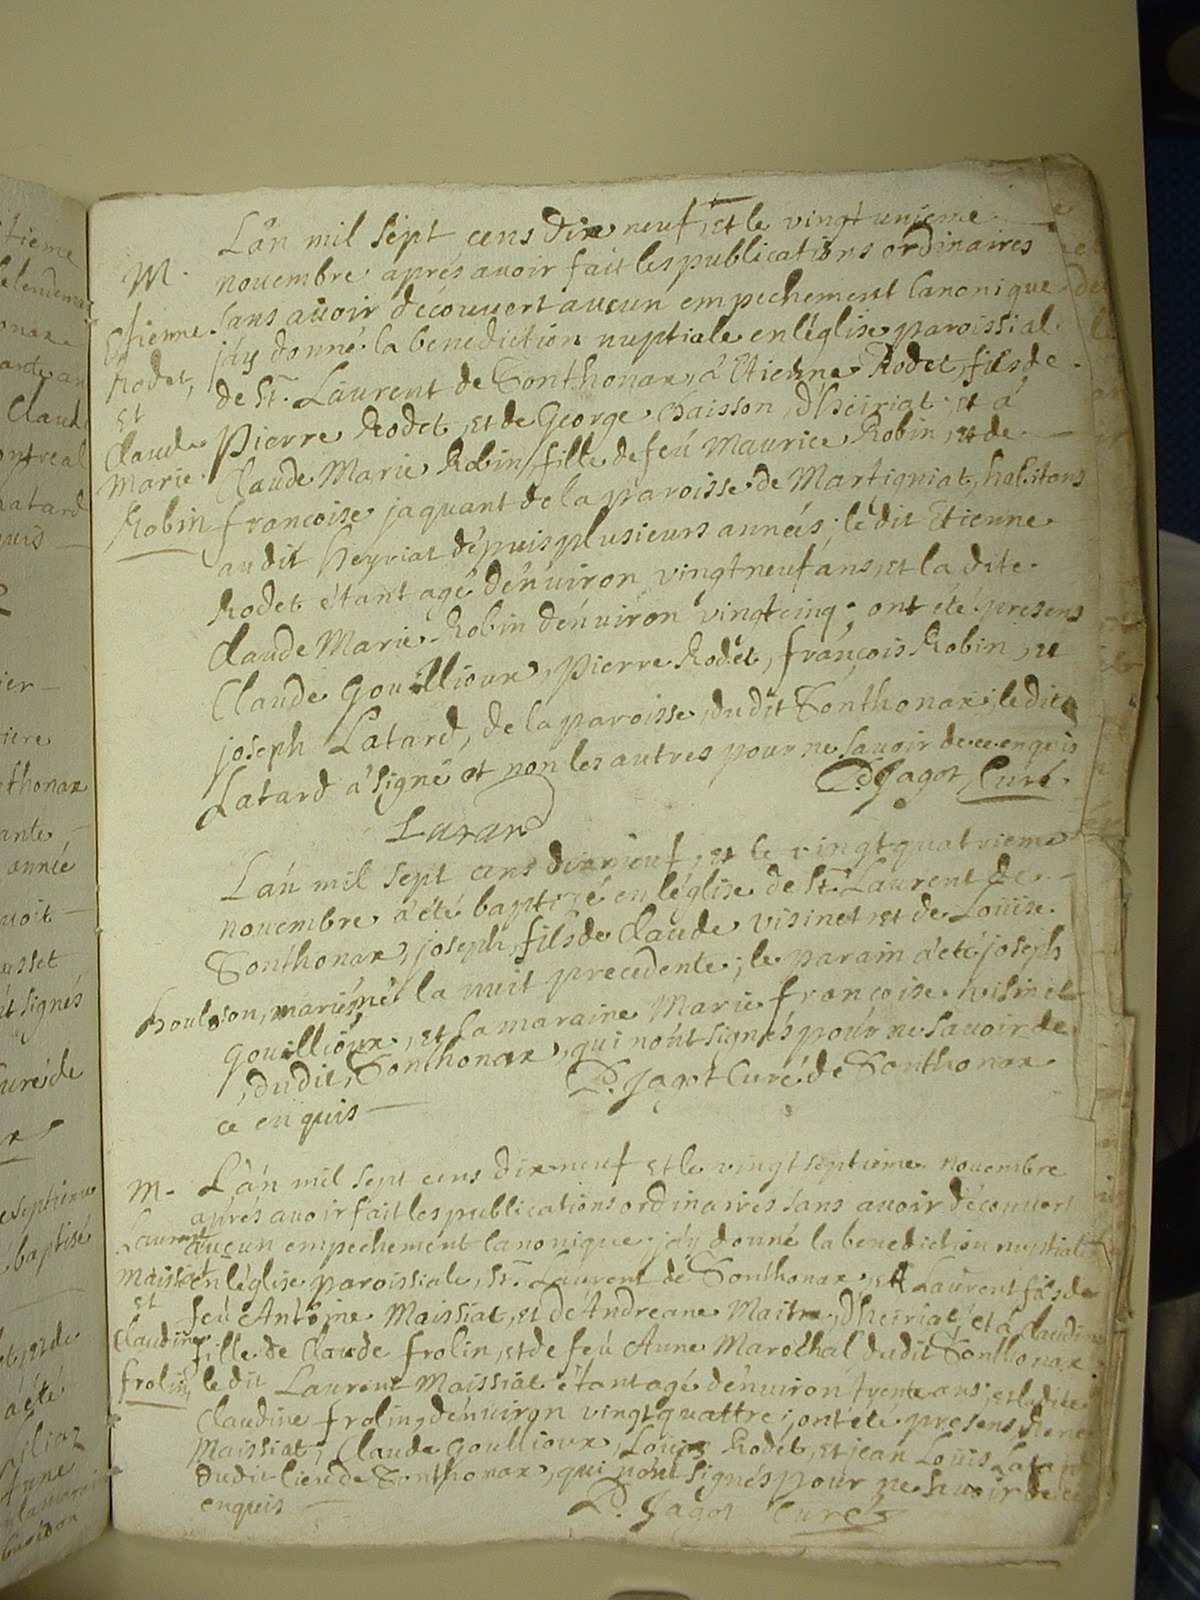 L'an mil sept cens dix neuf, et le vingt unieme
M. novembre aprés avoir fait les publications ordinaires
Estienne sans avoir découvert aucun empechement canonique
Rodet, j'ay donné la benediction nuptiale en l'église paroissial
et de St. Laurent de Sonthonax, á Etienne Rodet, fils de
Claude Pierre Rodet, et de George Chaisson, d'heiriat, et á
Marie Claude Marie Robin fille de feú Maurice Robin, et de
Robin francoise jaquant de la paroisse de Martigniat, habitans
au dit heyriat dépuis plusieurs annéés; lédit Etienne
Rodet étant agé d'énuiron vingt neuf ans, et la dite
Claude Marie Robin d'énuiron vingt cinq; ont été presens
Claude Gouillioux, Pierre Rodét, françois Robin, et
joseph Latard, de la paroisse, du dit Sonthonax; ledit
Latard á signé et non les autres pour ne savoir de ce enquis
D. Jagot Curé.
Latard
L'an mil sept cens dix neuf, et le vingt quatrieme
novembre a été baptizé en l'église de St. Laurent de
Sonthonax, joseph, fils de Claude visinet, et de Loüise
houlson, mariés, né la nuit precedente; le parain a été joseph
Gouillioux, et la maraine Marie françoise visinet
du dit Sonthonax, qui n'ont signés pour ne savoir de
ce enquis
D. Jagot Curé de Sonthonax
L'an mil sept cens dix neuf et le vingt septieme novembre
M. aprés avoir fait les publications ordinaires sans avoir découvert
Laurent aucun empechement canonique, j'ay donné la benediction nuptiale
Maissiat en l'église paroissiale, St. Laurent de Sonthonax, á Laurent fils de
et feú Antoine Maissiat, et d'Andreane Maitre, d'heiriat, et á Claudine
Claudine fille de Claude frolin, et de feú Anne Maréchal, du dit Sonthonax
frolin, le dit Laurent Maissiat étant agé d'énuiron trente ans, et la dite
Claudine frolin, d'énuiron vingt quattre; ont été presens
Maissiat, Claude Gouillioux, Loüis Rodét, et jean Loüis Latard
du dit lieu de Sonthonax, qui n'ont signés pour ne savoir de ce
enquis
D. Jagot Curé